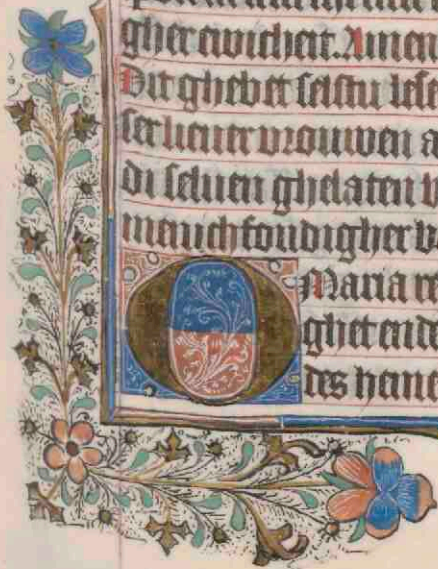 gher ewicheit. Amen
Dit ghebet selstu lese
ser lieuer vrouwen a
di seluen ghelaten
menichfoudigher
O Maria
ghetende
des heme